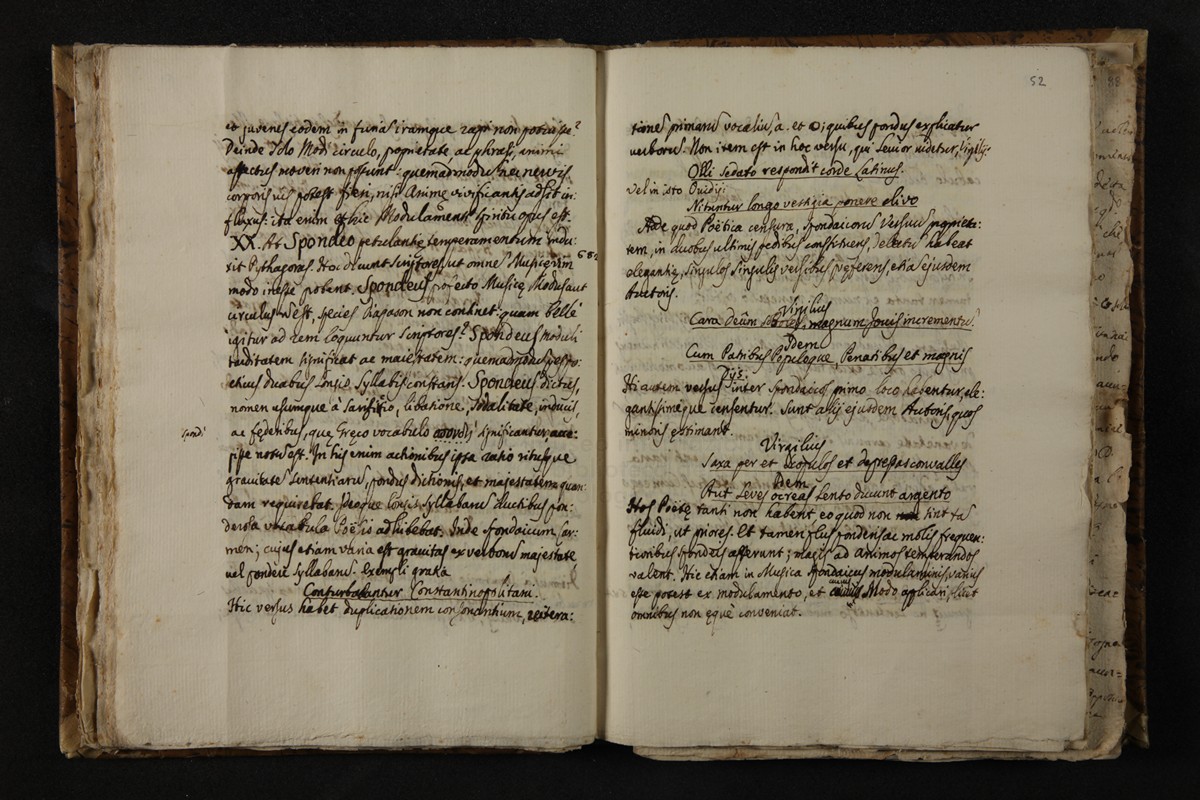 et juvenes eodem in furias iramque rapi non potuisse?
Deinde solo Modi circulo, proprietate ac phrasi, animi
affectus moveri non possunt: quemadmodum nec nervis
corporis vis potest fieri, nisi Animę vivificantis adsit in:
fluxus: ita enim et hic Modulamenti spiritu opus est.
XX. At Spondeo petulantię temperamentum indu:
xit Pythagoras. Hoc dicunt scriptores, ut omnes Musicę in
modo inesse putent. Spondeus porro Musicę Modus aut
circulus est. species diapason non continet: quam bellè
igitur ad rem loquuntur scriptores? Spondeus moduli
tarditatem significat ac maiestatem: quemadmodum pes po:
eticus duabus longis syllabis constans. Spondeus dictus,
nomen usumque à sacrificio, libatione, sodalitate, induciis,
ac fęderibus, quę Gręco vocabulo significantur, acce:
spondi
pisse notum est. In his enim actionibus ipsa ratio ritusque
gravitatem sententiarum, pondus dictionis, et majestatem quan:
dam requirebat. Ideoque longis syllabarum ductibus pon:
derosa vocabula Poësis adhibebat. Inde spondaicum Car:
men; cujus etiam varia est gravitas ex verborum majestate,
vel pondere syllabarum. Exempli gratia
Conturbabantur Constantinopolitani.
Hic versus habet duplicationem consonantium, reitera:
52
tiones primarum vocalium a. et o; quibus pondus explicatur
verborum. Non item est in hoc versu, qui levior videtur, Virgilij:
Olli sedato respondit corde Latinus.
Vel in isto Ouidij:
Nituntur longo vestigia ponere clivo
Adde quod Poëtica censura, spondaicorum Versuum proprieta:
tem, in duobus ultimis pedibus consistens, delectum habeat
elegantię, singulos singulis versibus pręferens, etiam ejusdem
Auctoris.
Virgilius
Cara deûm soboles, magnum Jouis incrementum.
Idem
Cum Patribus Populoque, Penatibus et magnis
Dijs.
Hi autem versus inter spondaicos primo loco habentur, ele:
gantissimique censentur. Sunt alij ejusdem Authoris, quos
minoris ęstimant.
Virgilius
Saxa per et scopulos et depressas convalles
Idem
Aut leves ocreas lento ducunt argento
Hos Poëtę tanti non habent eo quod non sint tam
fluidi, ut priores. Et tamen plus ponderis ac molis frequen:
tioribus spondeis afferunt; magis ad animos temperandos
valent. Hic etiam in Musica spondaicus modulaminis varius
esse potest ex modulamento, et cuivis Modo applicari, licet
omnibus non ęquè conveniat.